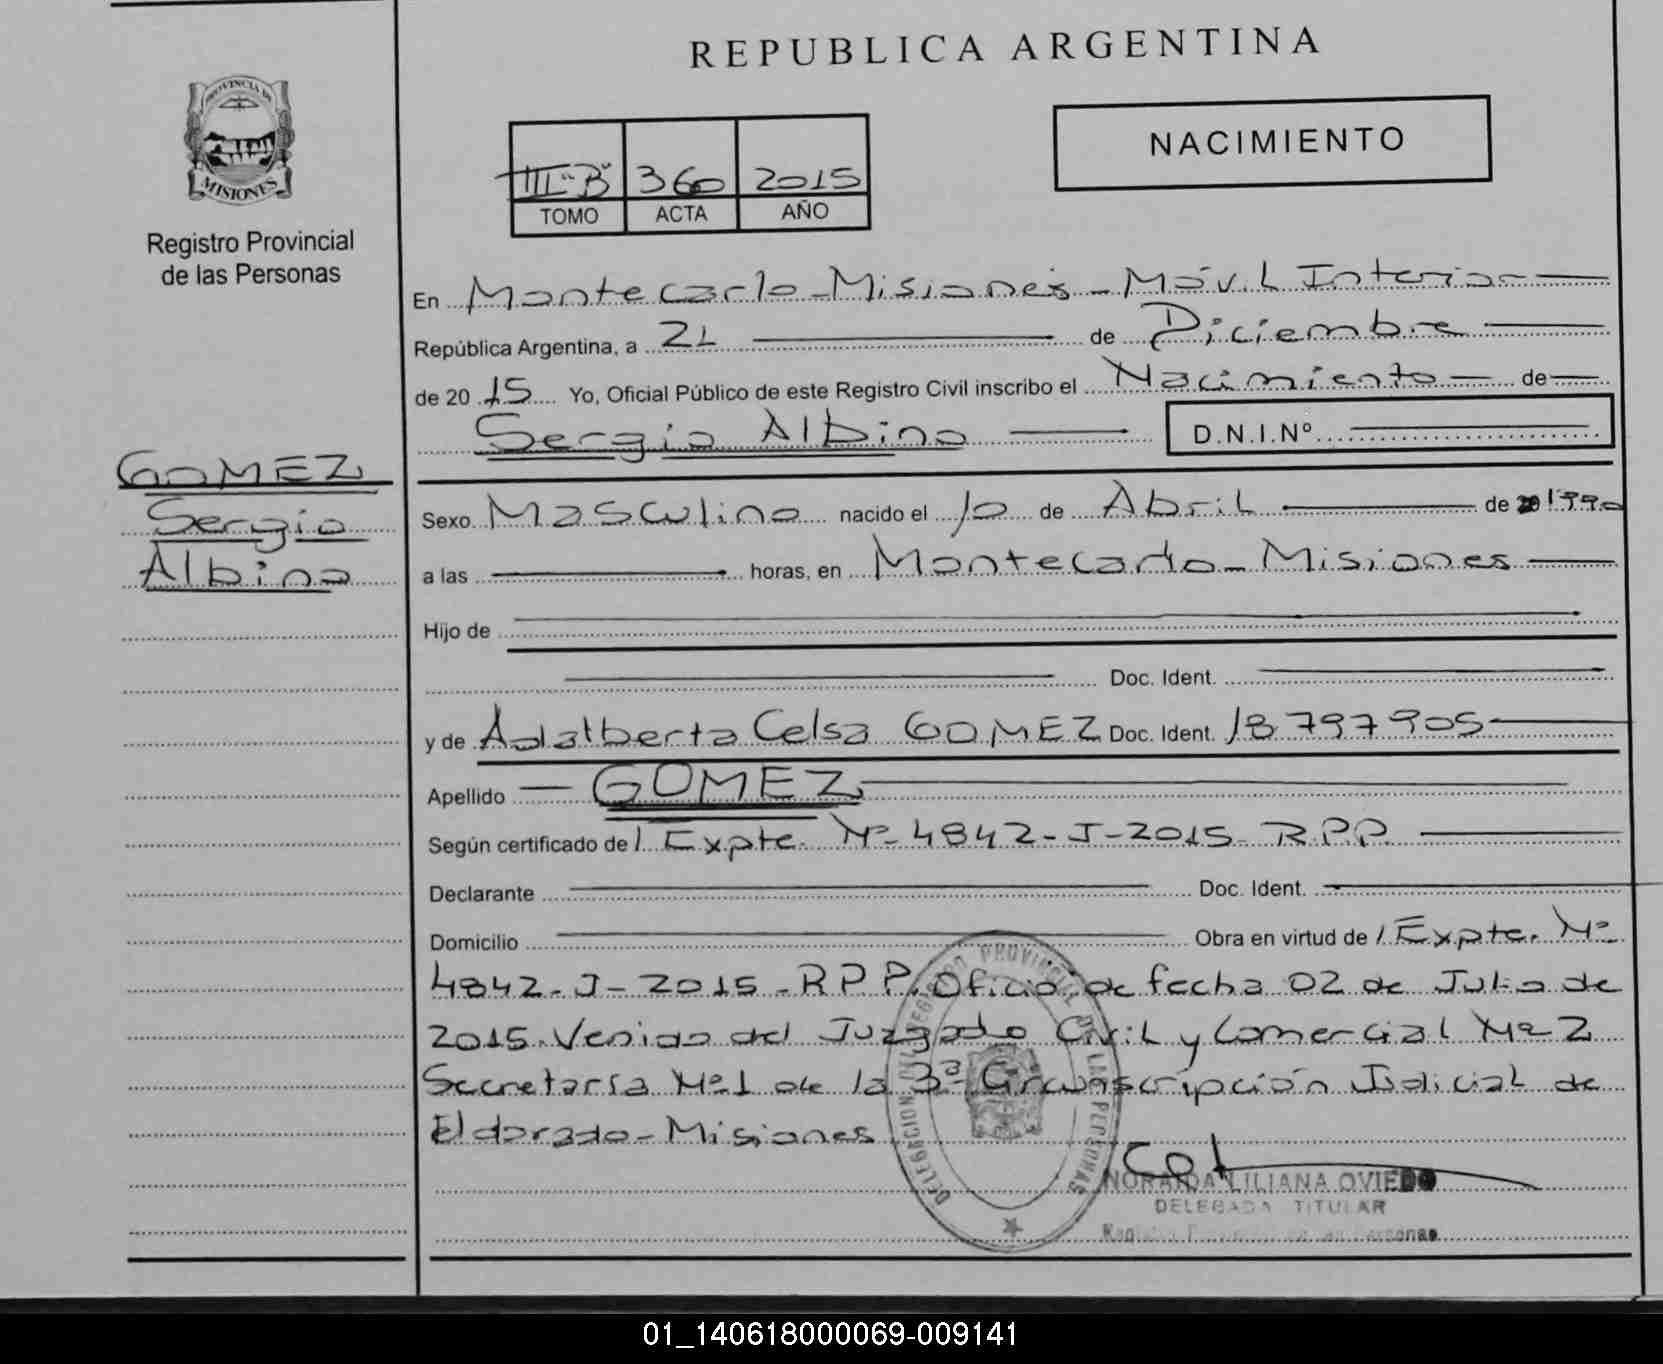 REPUBLICA ARGENTINA
PROVINCIA DE
MISIONES
Registro Provincial
de las Personas
NACIMIENTO
III "B" 360 2015
TOMO ACTA AÑO
En Montecarlo - Misiones - Móvil Interior
República Argentina, a 21 de Diciembre
de 20 15 Yo, Oficial Público de este Registro Civil inscribo el Nacimiento de
Sergio Albino D.N.I.Nº
GOMEZ
Sergio
Albino
Sexo Masculino nacido el 10 de Abril de 20 1990
a las horas, en Montecarlo - Misiones
Hijo de
Doc. Ident.
y de Adalberta Celsa GOMEZ Doc. Ident. 18797905
Apellido GOMEZ
Según certificado de / Expte. Nº 4842-J-2015- R.P.P.
Declarante Doc. Ident.
Domicilio Obra en virtud de / Expte. Nº
4842-J-2015-R P P. Oficio de fecha 02 de Julio de
2015. Venido del Juzgado Civil y Comercial Nº 2
Secretaría Nº 1 de la 3ª Circunscripción Judicial de
Eldorado - Misiones
DELEGACION DEL REGISTRO PROVINCIAL DE LAS PERSONAS
NORAIDA LILIANA OVIEDO
DELEGADA TITULAR
Personas
01_140618000069-009141